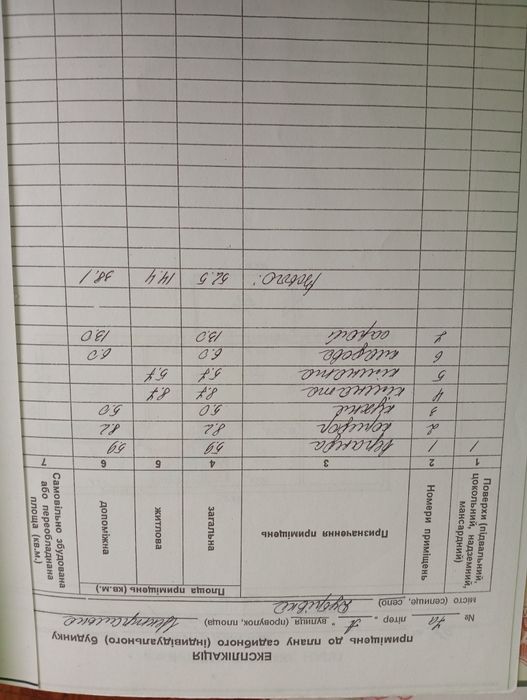 ЕКСПЛІКАЦІЯ
приміщень до плану садибного (індивідуального) будинку
№ літер " А ", вулиця (провулок, площа)
місто (селище, село) Дубрівка
Поверхи (підвальний, цокольний, надземний, мансардний) Номери приміщень Призначення приміщень Площа приміщень (кв.м.) Самовільно збудована або переобладнана площа (кв.м.)
загальна житлова допоміжна
1 2 3 4 5 6 7
1 1 веранда 5,9 5,9
2 коридор 8,2 8,2
3 кухня 5.0 5.0
4 кімната 8,7 8,7
5 кімната 5,7 5,7
6 6.0 6.0
7 сарай 13.0 13.0
Всього: 52.5 14.4 38,1